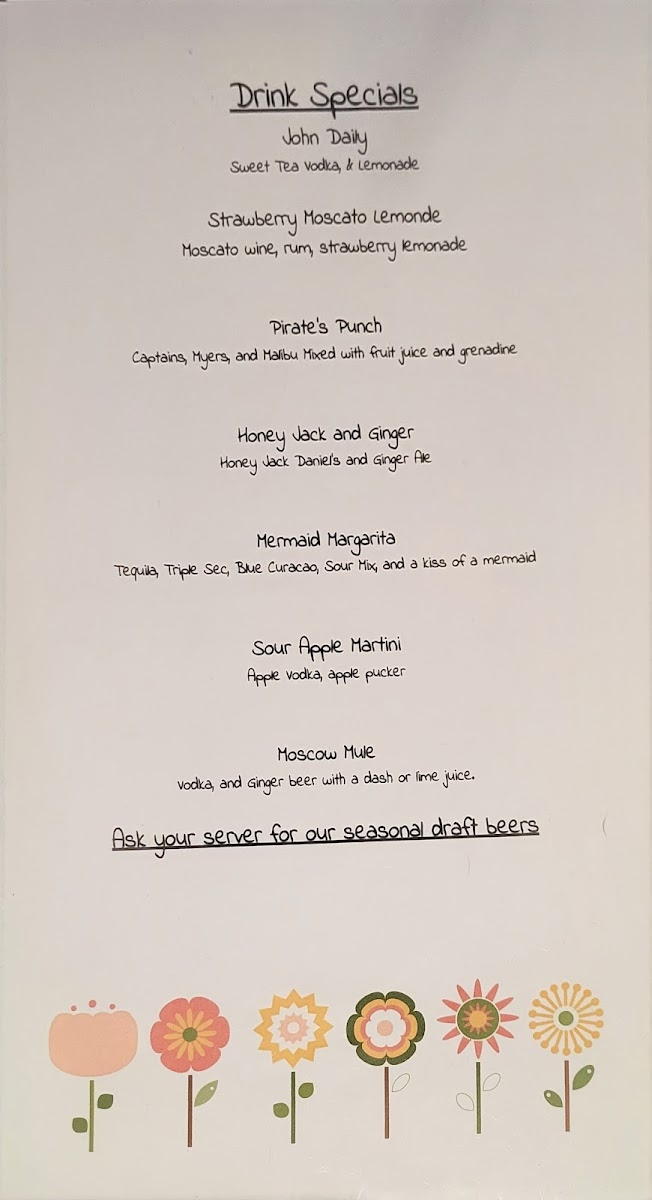 Drink Specials
John Daily
Sweet Tea Vodka, & Lemonade
Strawberry Moscato Lemonde
Moscato wine, rum, strawberry lemonade
Pirate's Punch
Captains, Myers, and Malibu Mixed with fruit juice and grenadine
Honey Jack and Ginger
Honey Jack Daniel's and Ginger Ale
Mermaid Margarita
Tequila, Triple Sec, Blue Curacao, Sour Mix, and a kiss of a mermaid
Sour Apple Martini
Apple Vodka, apple pucker
Moscow Mule
Vodka, and Ginger beer with a dash or lime juice.
Ask your server for our seasonal draft beers